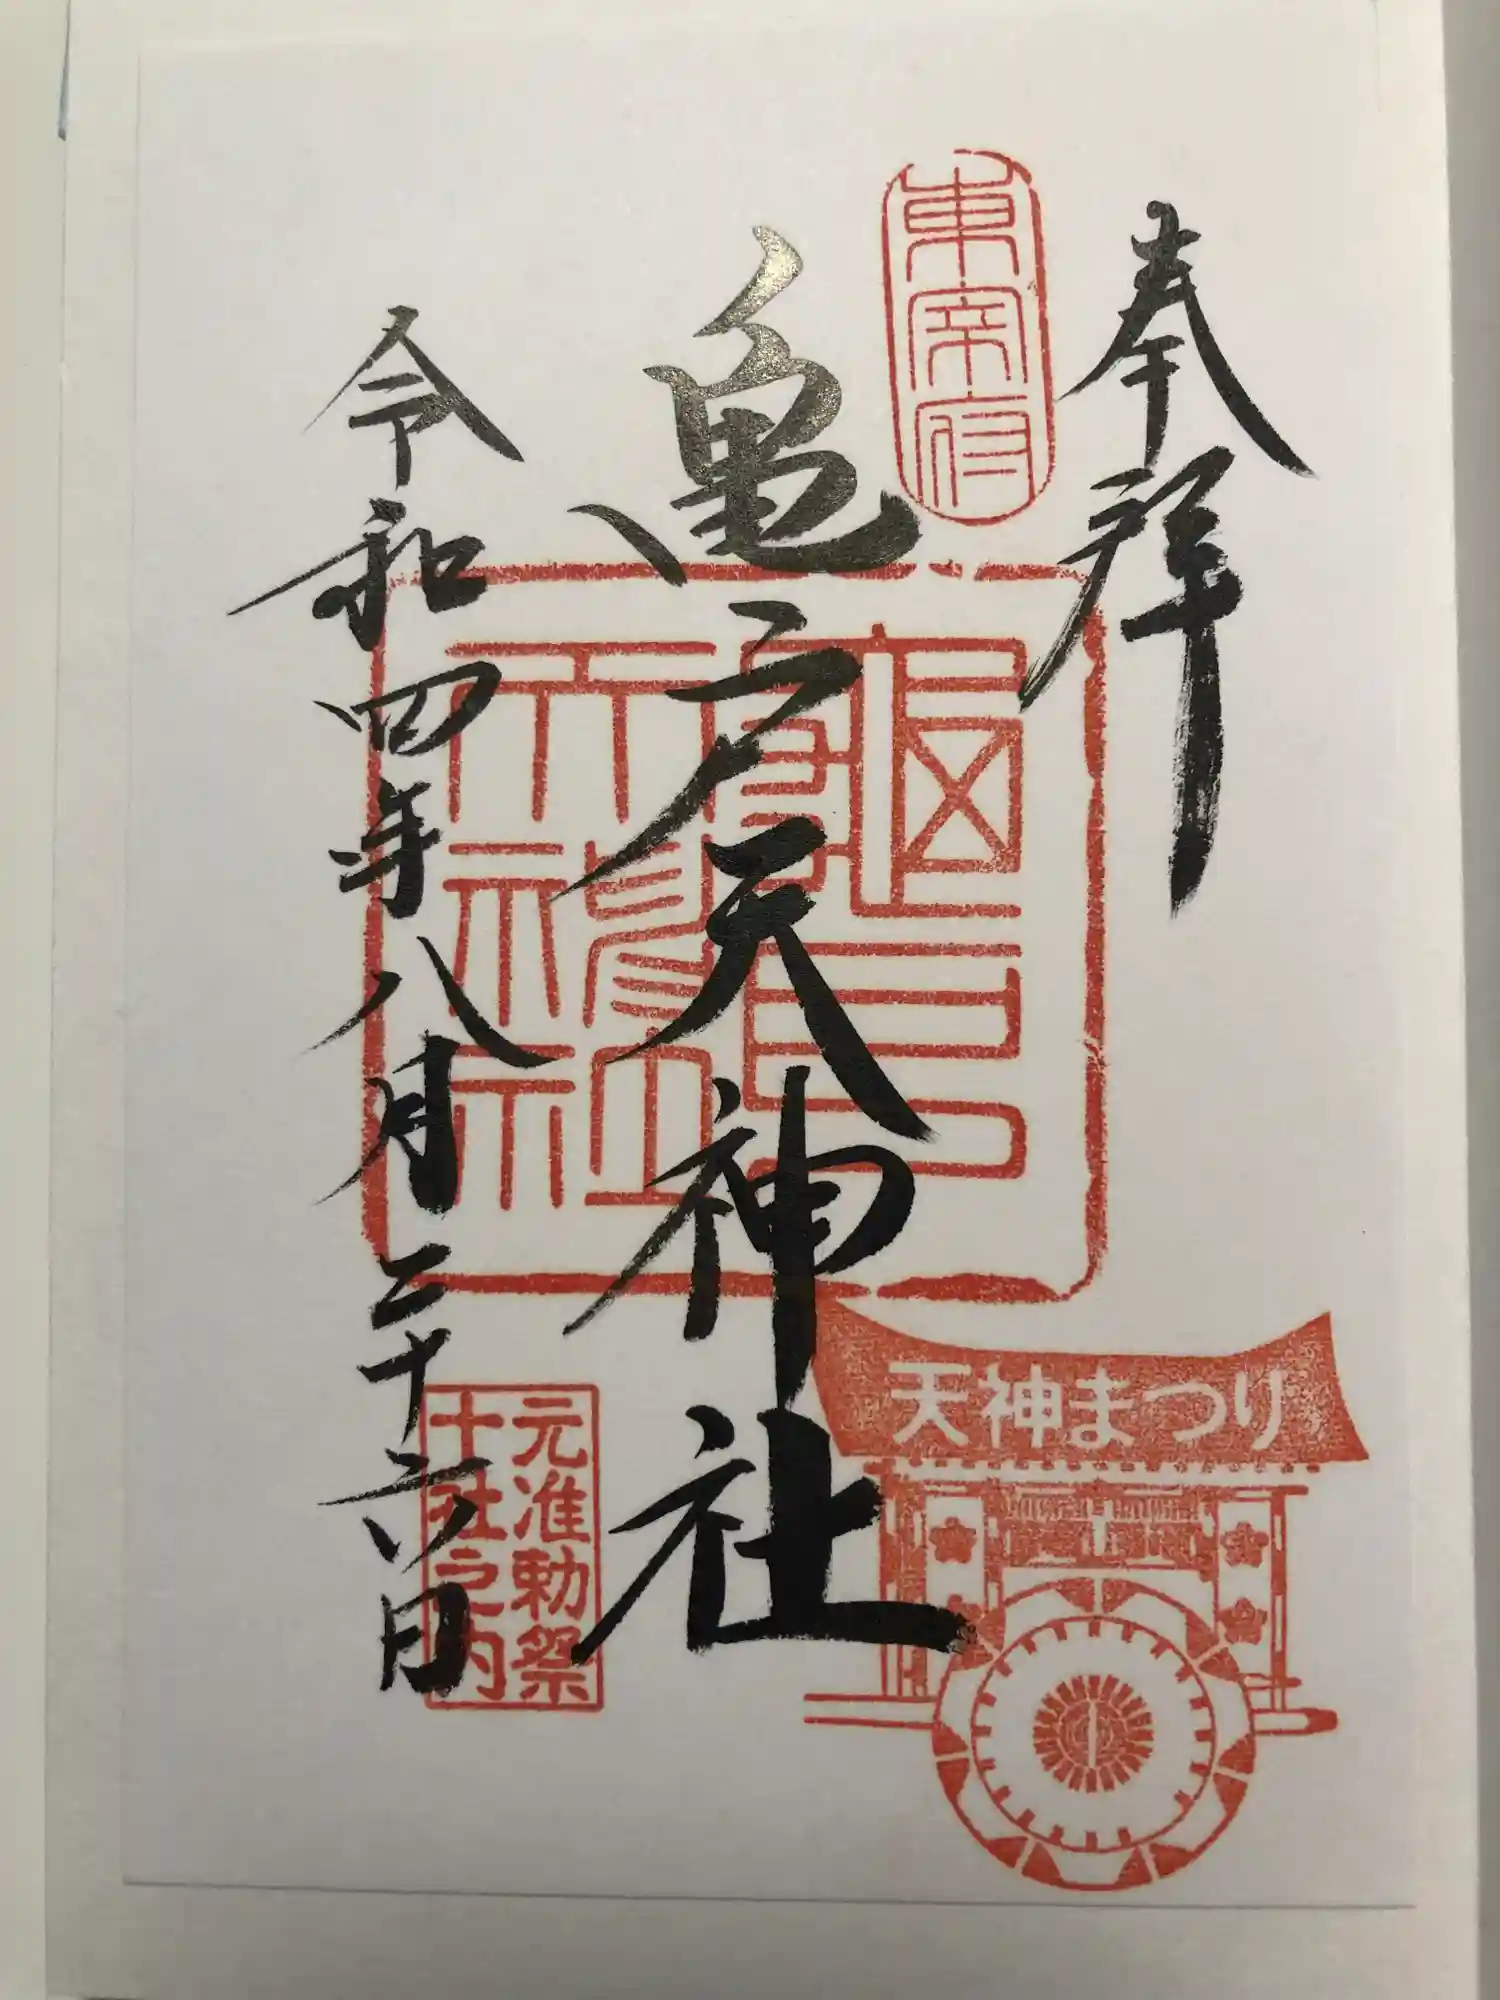 奉拝
東宰府
亀戸天神社
龜戸天神社
令和四年八月二十六日
天神まつり
元准勅祭
十社之内